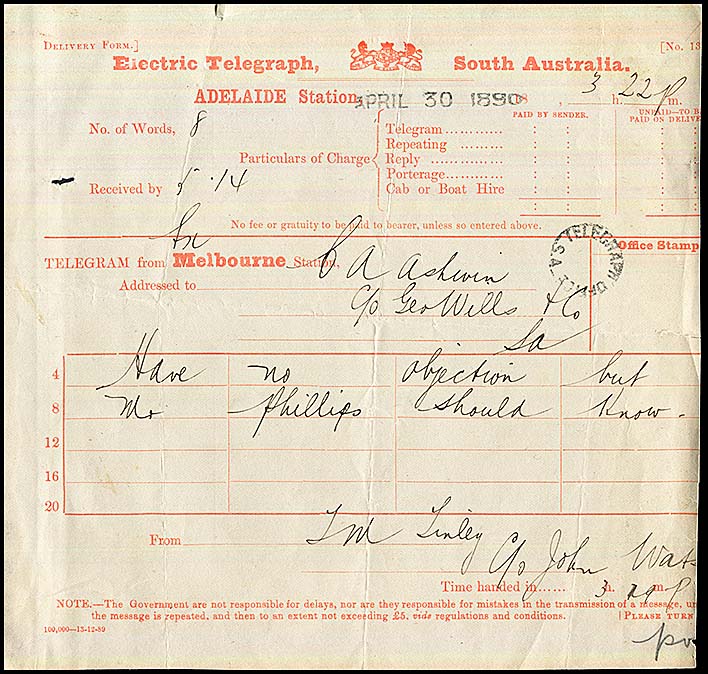 DELIVERY FORM.] [No. 13
Electric Telegraph, South Australia.
ADELAIDE Station APRIL 30 1890 8 , 3 h. 22 p m.
PAID BY SENDER. UNPAID—TO B
PAID ON DELIVE
No. of Words, 8
Particulars of Charge
Telegram
Repeating
Reply
Porterage
Cab or Boat Hire
Received by 5.14
No fee or gratuity to be paid to bearer, unless so entered above.
TELEGRAPH OFFICE S.A.
Office Stamp
TELEGRAM from Melbourne Station,
Addressed to C A Ashwin
C/o Geo Wills & Co
Sa
4 Have no objection but
8 Mr Phillips should know.
12
16
20
From T M Linley
C/o John Wats
Time handed in...... 3 h. m. p
NOTE.—The Government are not responsible for delays, nor are they responsible for mistakes in the transmission of a message, un
the message is repeated, and then to an extent not exceeding £5, vide regulations and conditions. [PLEASE TURN
100,000—13-12-89